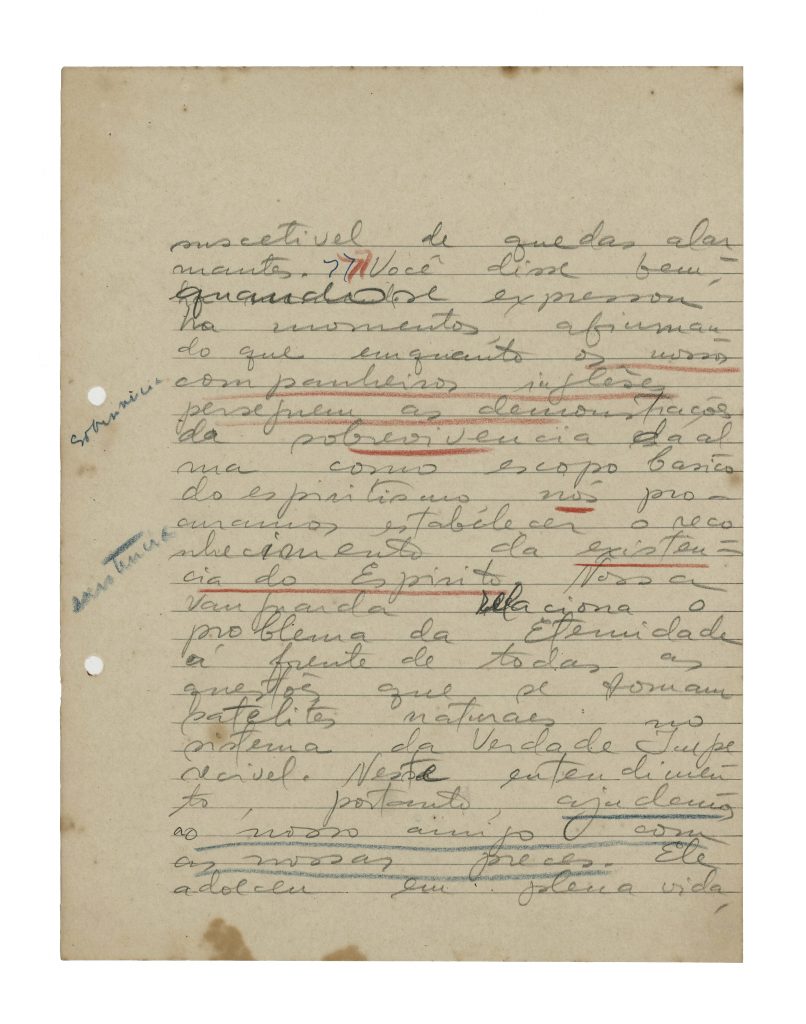 suscetivel de quedas alar
mantes. 77 Você disse bem,
quando se expressou
ha momentos, afirman
do que emquanto os nossos
companheiros inglêses
perseguem as demonstrações
da sobrevivencia da al
ma como escopo basico
do espiritismo nós pro-
curamos estabelecer o reco
nhecimento da existen-
cia do Espirito. Nossa
vanguarda relaciona o
problema da Eternidade
á frente de todas as
questões que se tornam
satélites naturaes no
sistema da Verdade Impe
recivel. Neste entendimen
to, portanto, ajudemos
ao nosso amigo com
as nossas preces. Ele
adoeceu em plena vida,
sobrevivencia
existência